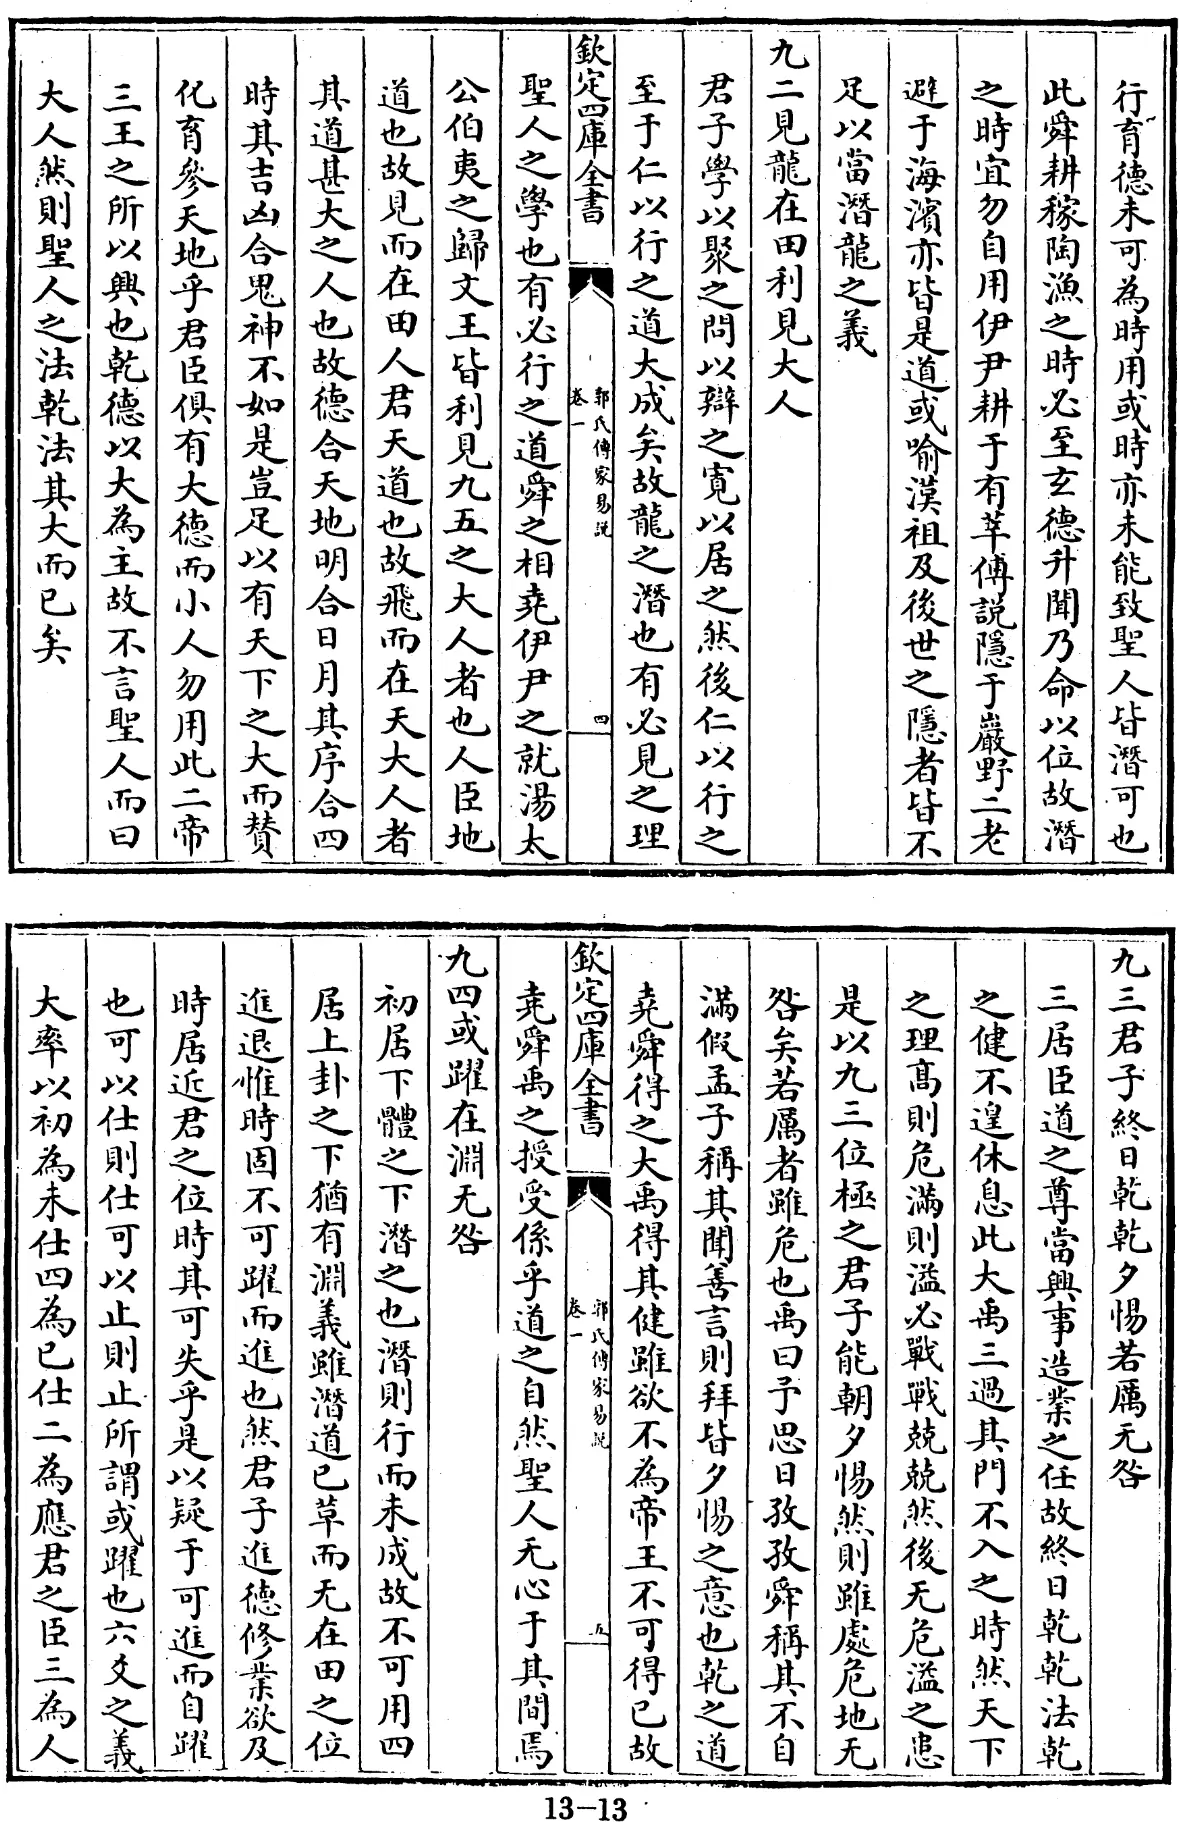 行育德未可為時用或時亦未能致聖人皆潛可也
此舜耕稼陶漁之時必至玄德升聞乃命以位故潛
之時宜勿自用伊尹耕于有莘傅說隱于巖野二老
避于海濱亦皆是道或喻漢祖及後世之隱者皆不
足以當潛龍之義
九二見龍在田利見大人
君子學以聚之問以辯之寛以居之然後仁以行之
至于仁以行之道大成矣故龍之潛也有必見之理
欽定四庫全書
郭氏傳家易說
卷一
四
聖人之學也有必行之道舜之相堯伊尹之就湯太
公伯夷之歸文王皆利見九五之大人者也人臣地
道也故見而在田人君天道也故飛而在天大人者
其道甚大之人也故德合天地明合日月其序合四
時其吉凶合鬼神不如是豈足以有天下之大而賛
化育參天地乎君臣俱有大德而小人勿用此二帝
三王之所以興也乾德以大為主故不言聖人而曰
大人然則聖人之法乾法其大而已矣
九三君子終日乾乾夕惕若厲无咎
三居臣道之尊當興事造業之任故終日乾乾法乾
之健不遑休息此大禹三過其門不入之時然天下
之理髙則危滿則溢必戰戰兢兢然後无危溢之患
是以九三位極之君子能朝夕惕然則雖處危地无
咎矣若厲者雖危也禹曰予思日孜孜舜稱其不自
滿假孟子稱其聞善言則拜皆夕惕之意也乾之道
堯舜得之大禹得其健雖欲不為帝王不可得已故
欽定四庫全書
郭氏傳家易說
卷一
五
堯舜禹之授受係乎道之自然聖人无心于其間焉
九四或躍在淵无咎
初居下體之下潛之也潛則行而未成故不可用四
居上卦之下猶有淵義雖潛道已革而无在田之位
進退惟時固不可躍而進也然君子進德修業欲及
時居近君之位時其可失乎是以疑于可進而自躍
也可以仕則仕可以止則止所謂或躍也六爻之義
大率以初為未仕四為已仕二為應君之臣三為人
13-13